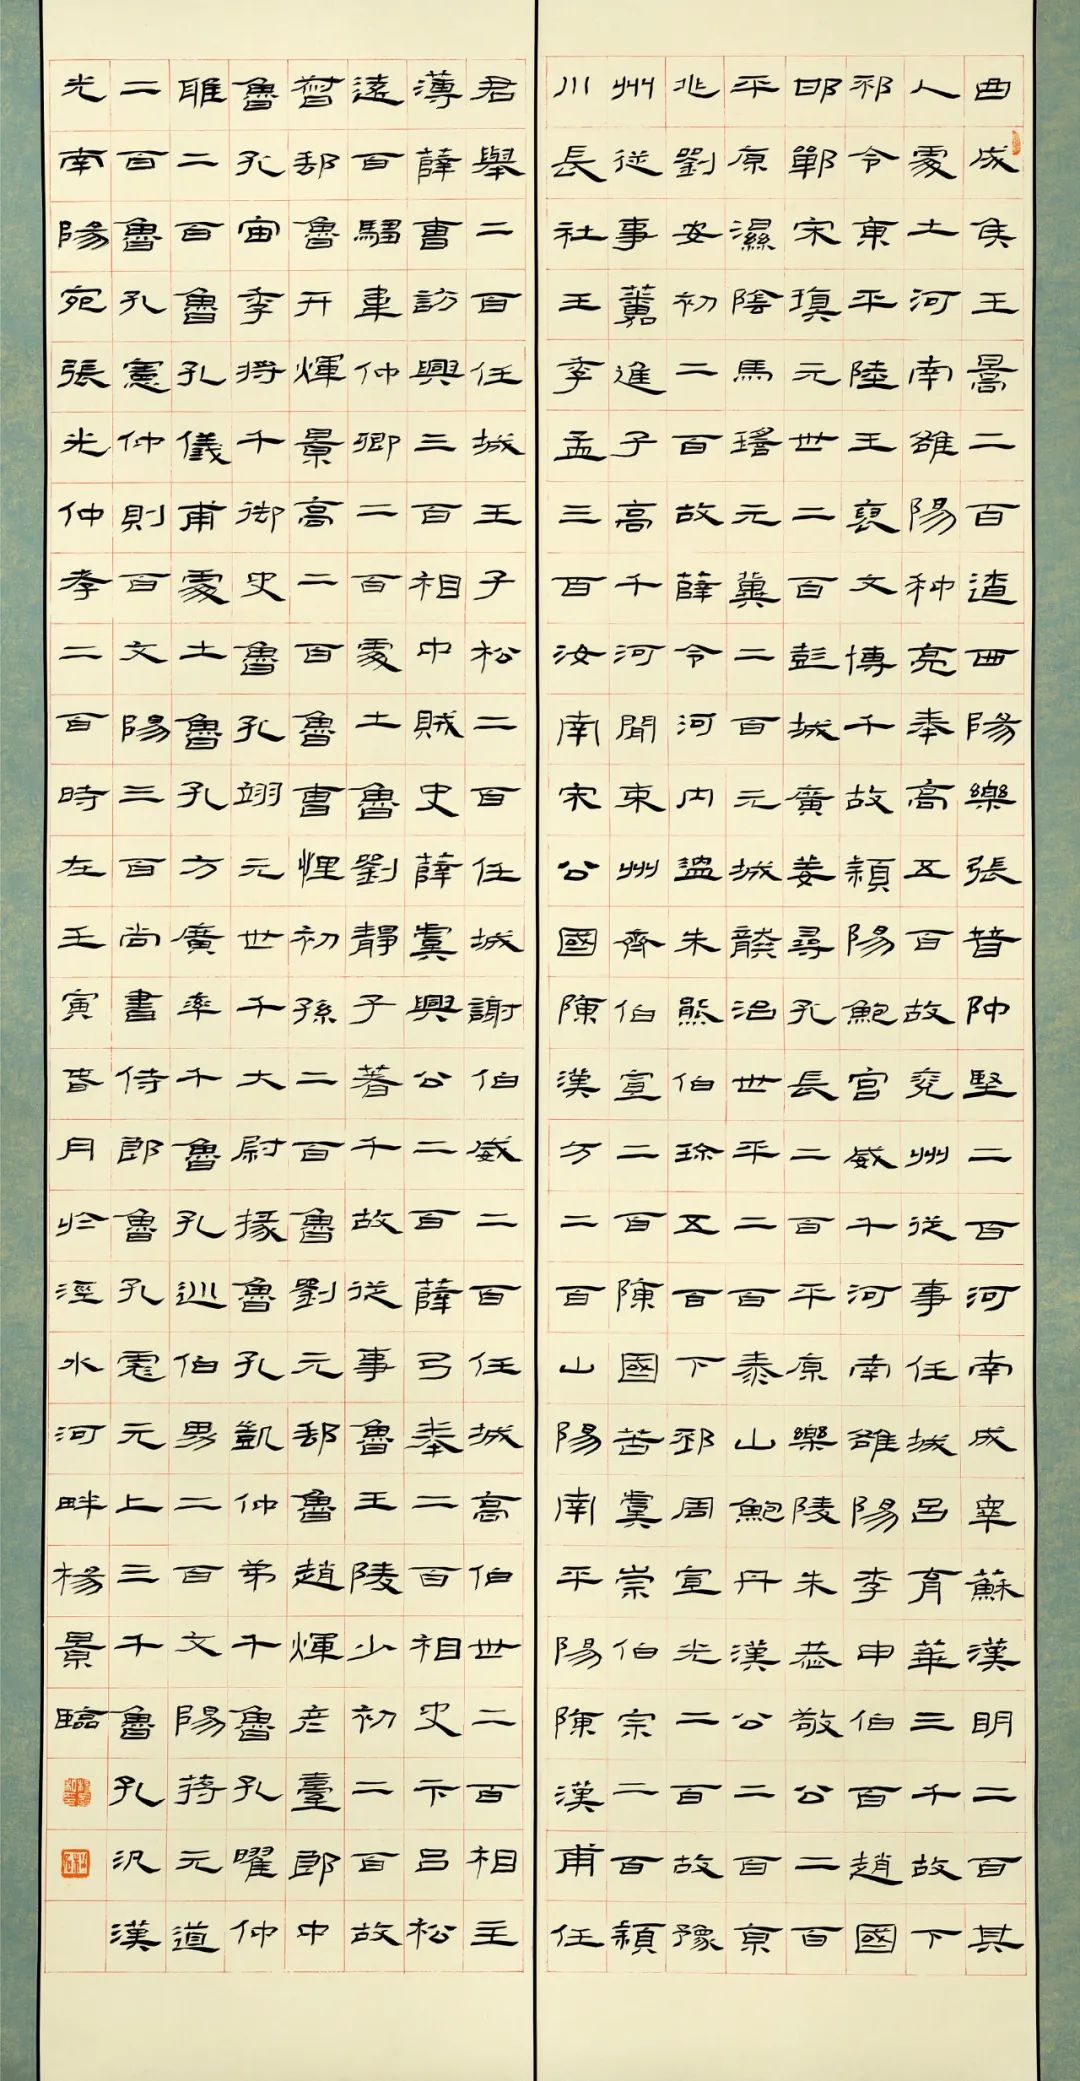 曲成侯王暠二百遼西陽樂張普仲堅二百河南成睾蘇漢明二百其
人處士河南雒陽种亮奉高五百故兗州從事任城呂育華三千故下
邳令東平陸王褒文博千故潁陽鮑宮威千河南雒陽李申伯百趙國
邯鄲宋瑱元世二百彭城廣姜尋孔長二百平原樂陵朱恭敬公二百
平原濕陰馬瑤元冀二百元城龔治世平二百泰山鮑丹漢公二百京
兆劉安初二百故薛令河內溫朱熊伯珍五百下邳周宣光二百故豫
州從事蕃進子高千河閒束州齊伯宣二百陳國苦虞崇伯宗二百潁
川長社王季孟三百汝南宋公國陳漢方二百山陽南平陽陳漢甫任
君舉二百任城王子松二百任城謝伯威二百任城高伯世二百相主
薄薛曹訪興三百相中賊史薛虞興公二百薛弓奉二百相史卞呂松
遠百騶韋仲卿二百處士魯劉靜子著千故從事魯王陵少初二百故
督郵魯开煇景高二百魯曹悝初孫二百魯劉元郵魯趙煇彥臺郎中
魯孔宙季將千御史魯孔翊元世千大尉掾魯孔凱仲弟千魯孔曜仲
雅二百魯孔儀甫處士魯孔方廣率千魯孔巡伯男二百文陽蔣元道
二百魯孔憲仲則百文陽三百尚書侍郎魯孔彪元上三千魯孔汎漢
光南陽宛張光仲孝二百時在壬寅春月於涇水河畔楊景臨